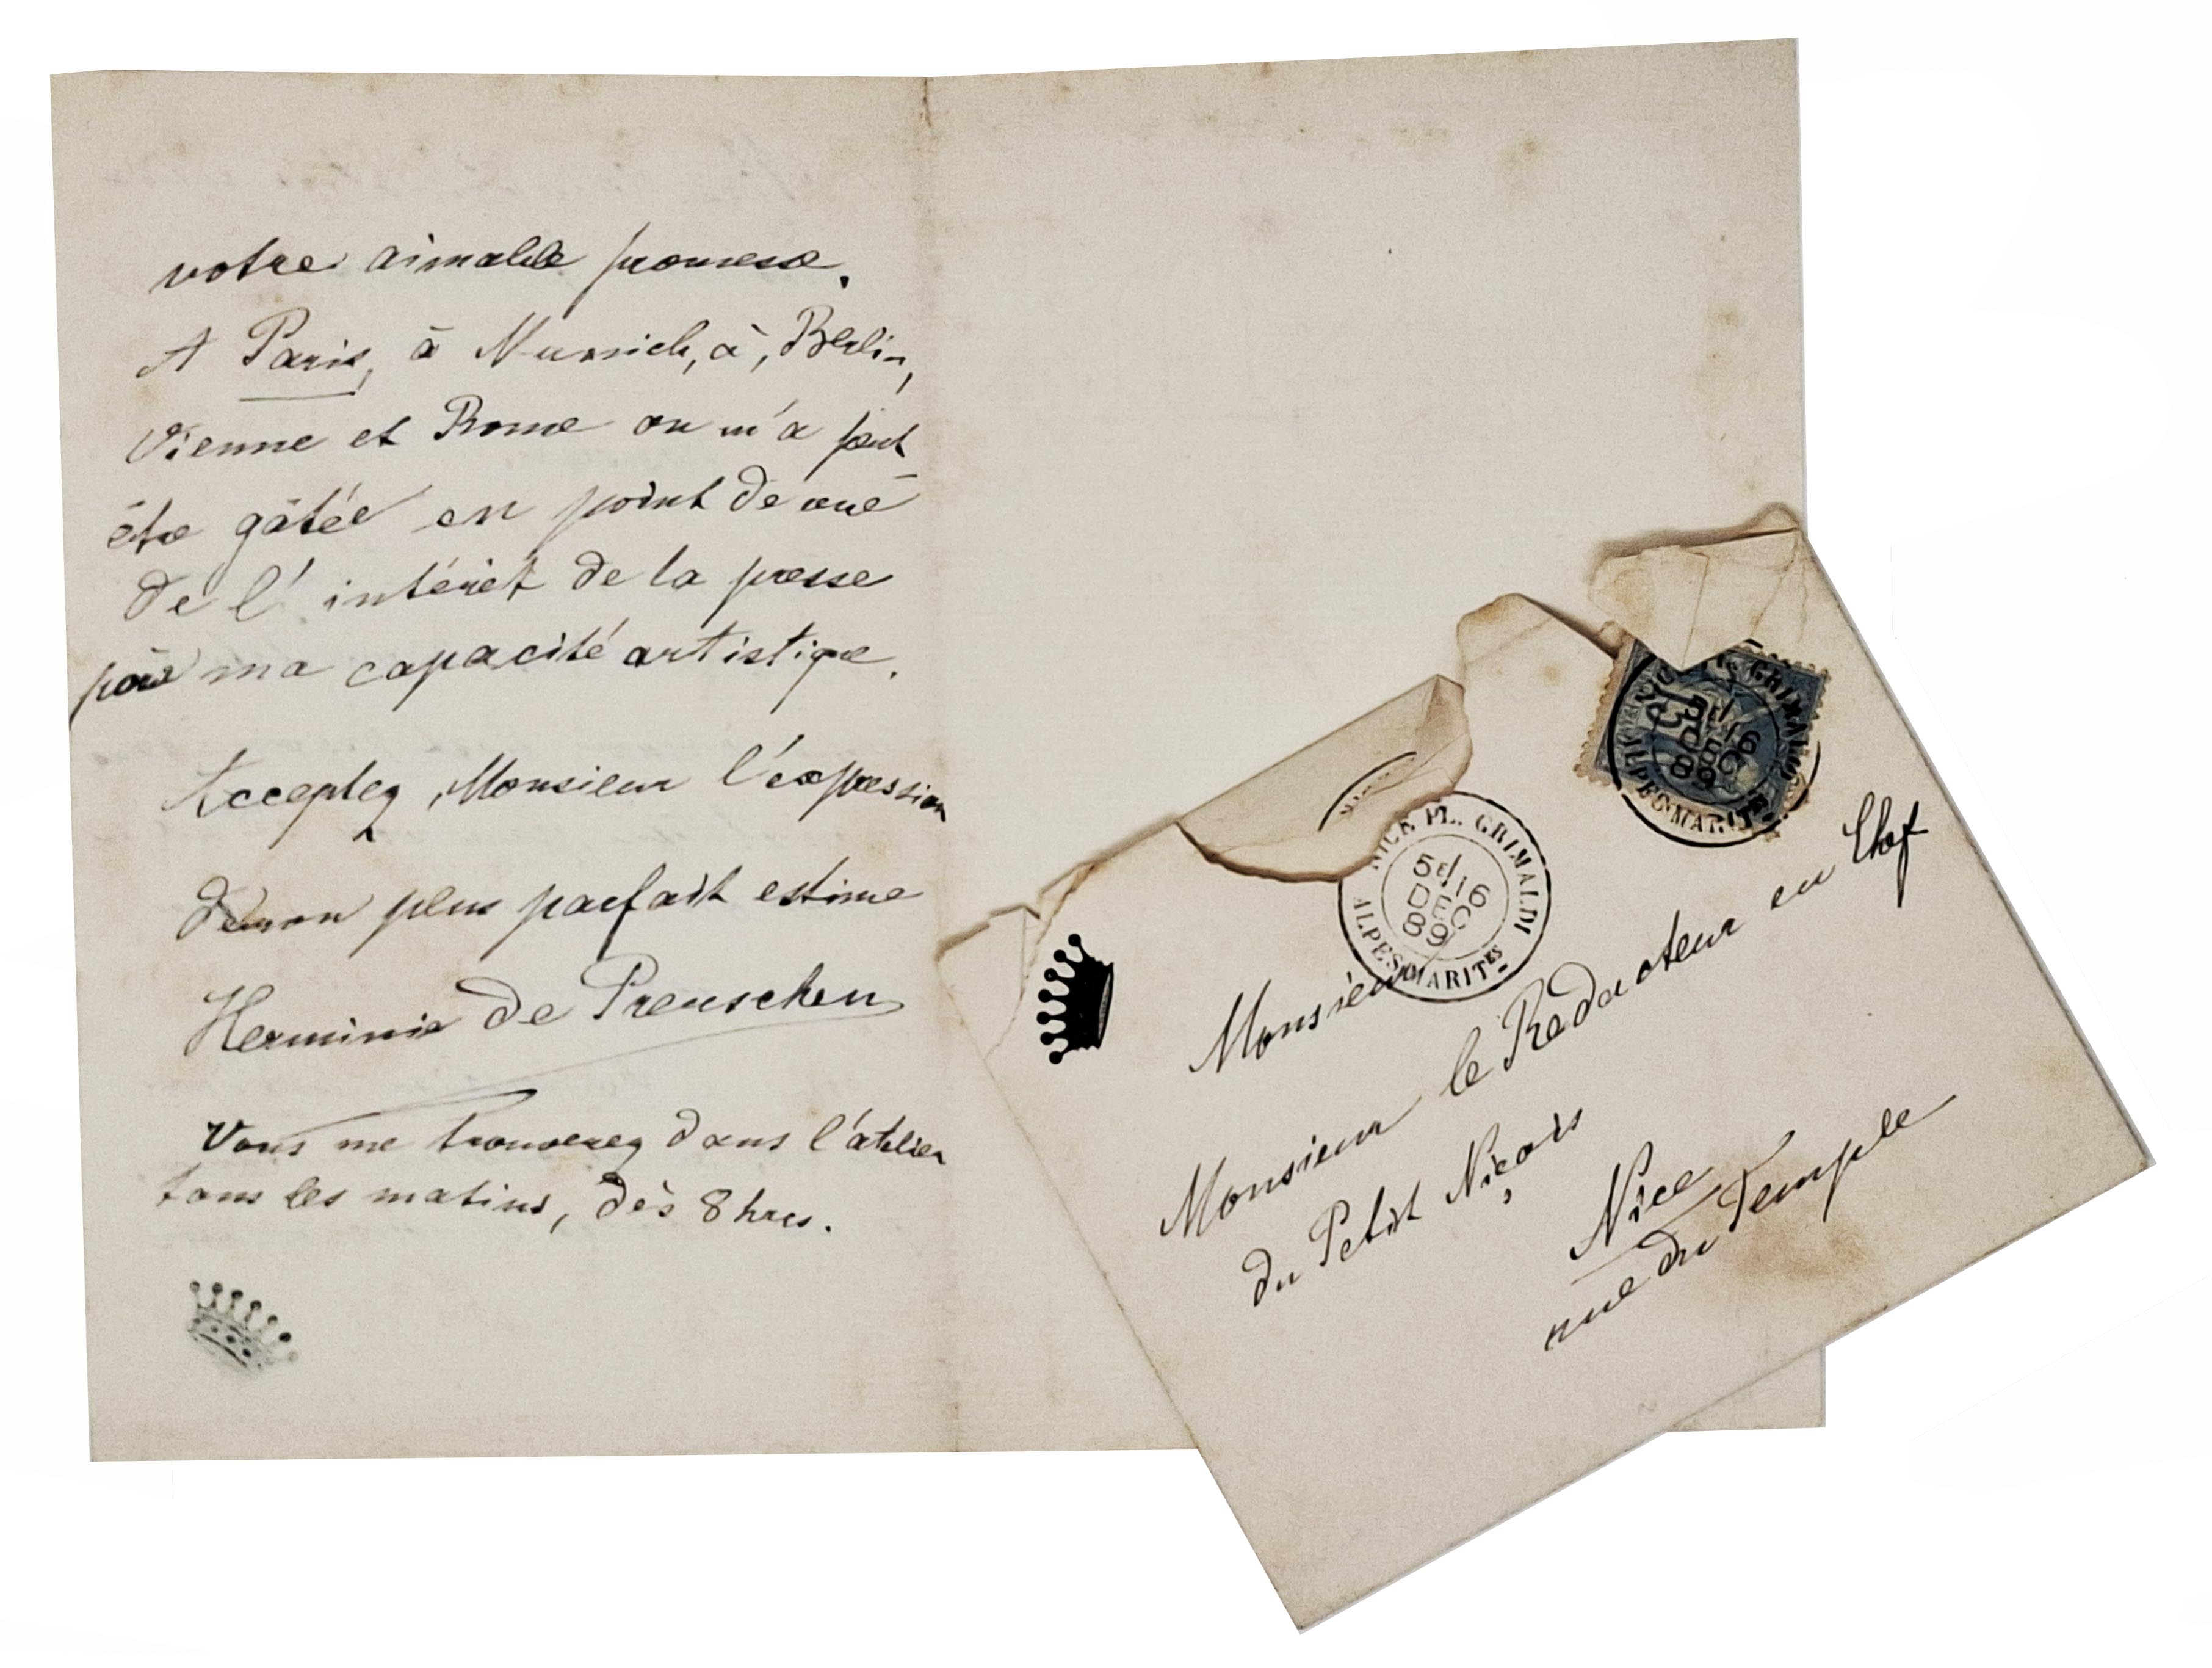 votre aimable promesse.
A Paris, à Munich, à, Berlin,
Vienne et Rome on m'a peut
être gâtée en point de vue
de l' intéret de la presse
pour ma capacité artistique.
Acceptez, Monsieur l'expression
de mon plus parfait estime
Herminie de Preuschen
Vous me trouverez dans l'atelier
tous les matins, dès 8 hres.
NICE PL. GRIMALDI
5E/16
DEC
89
ALPES MARITES
GRIMALDI
5E/16
DEC
89
ALPES-MARITES
Monsieur
Monsieur le Redacteur en Chef
du Petit Niçois
Nice
rue du Temple